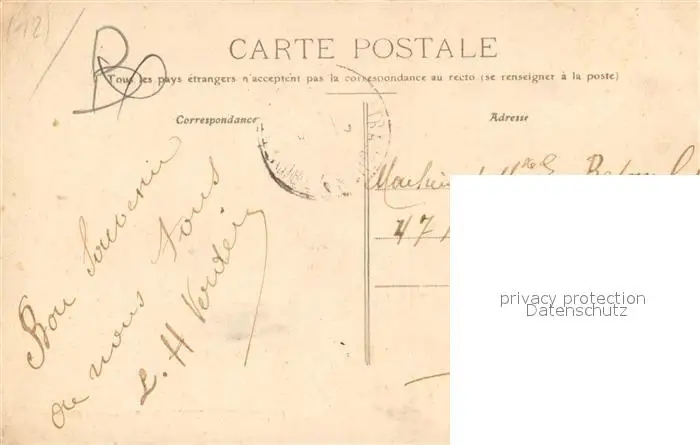 (12)
CARTE POSTALE
Tous les pays étrangers n'acceptent pas la correspondance au recto (se renseigner à la poste)
Correspondance
Adresse
Bon Souvenir
de nous tous
L. H Verdier
47
privacy protection
Datenschutz